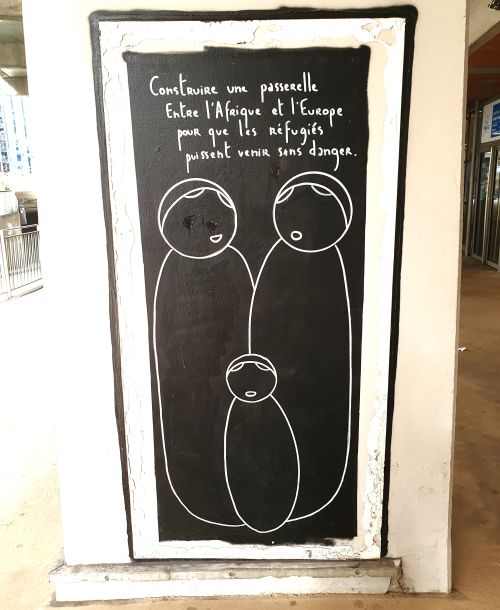 Construire une passerelle
Entre l'Afrique et l'Europe
pour que les réfugiés
puissent venir sans danger.